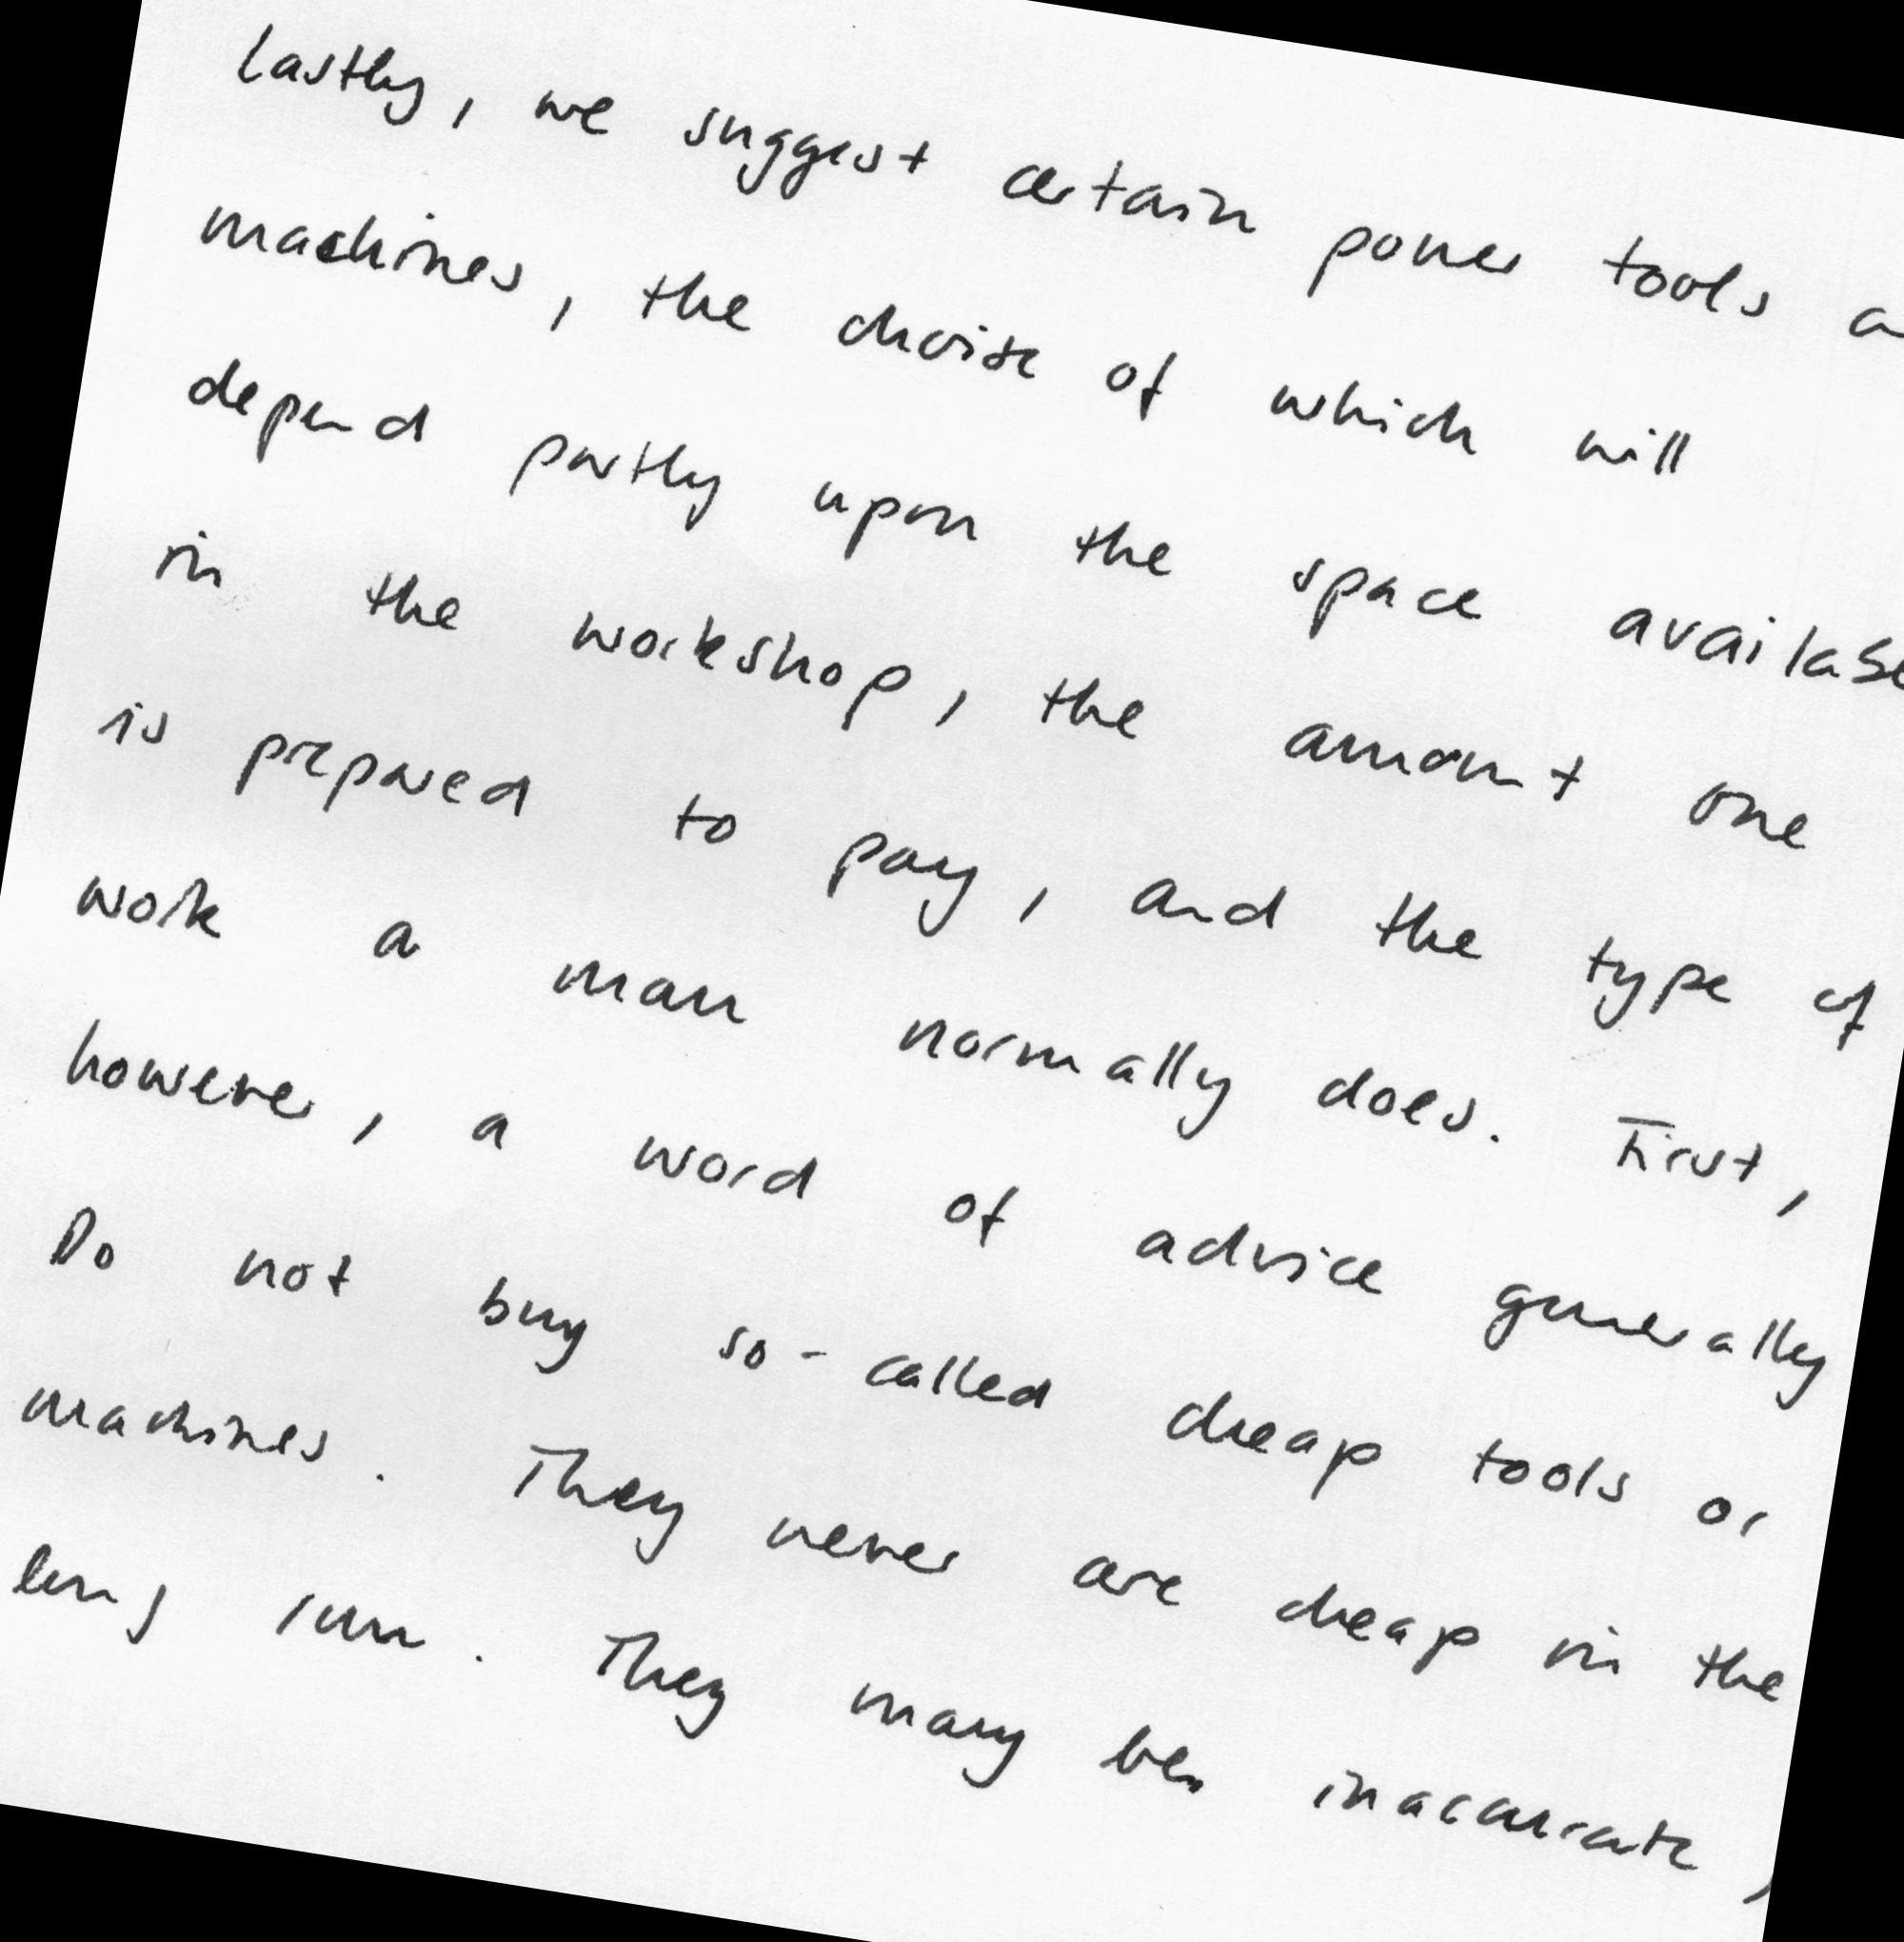 Lastly, we suggest certain power tools a
machines, the choise of which will
depend partly upon the space availab
in the workshop, the amount one
is prepared to pay, and the type of
work a man normally does. First,
however, a word of advice generally
Do not buy so-called cheap tools or
machines. They never are cheap in the
long run. They may be inaccurate,